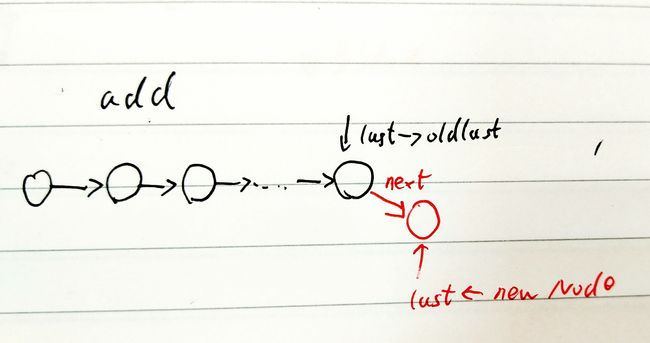 add
last→oldlast
next
last ← new Node